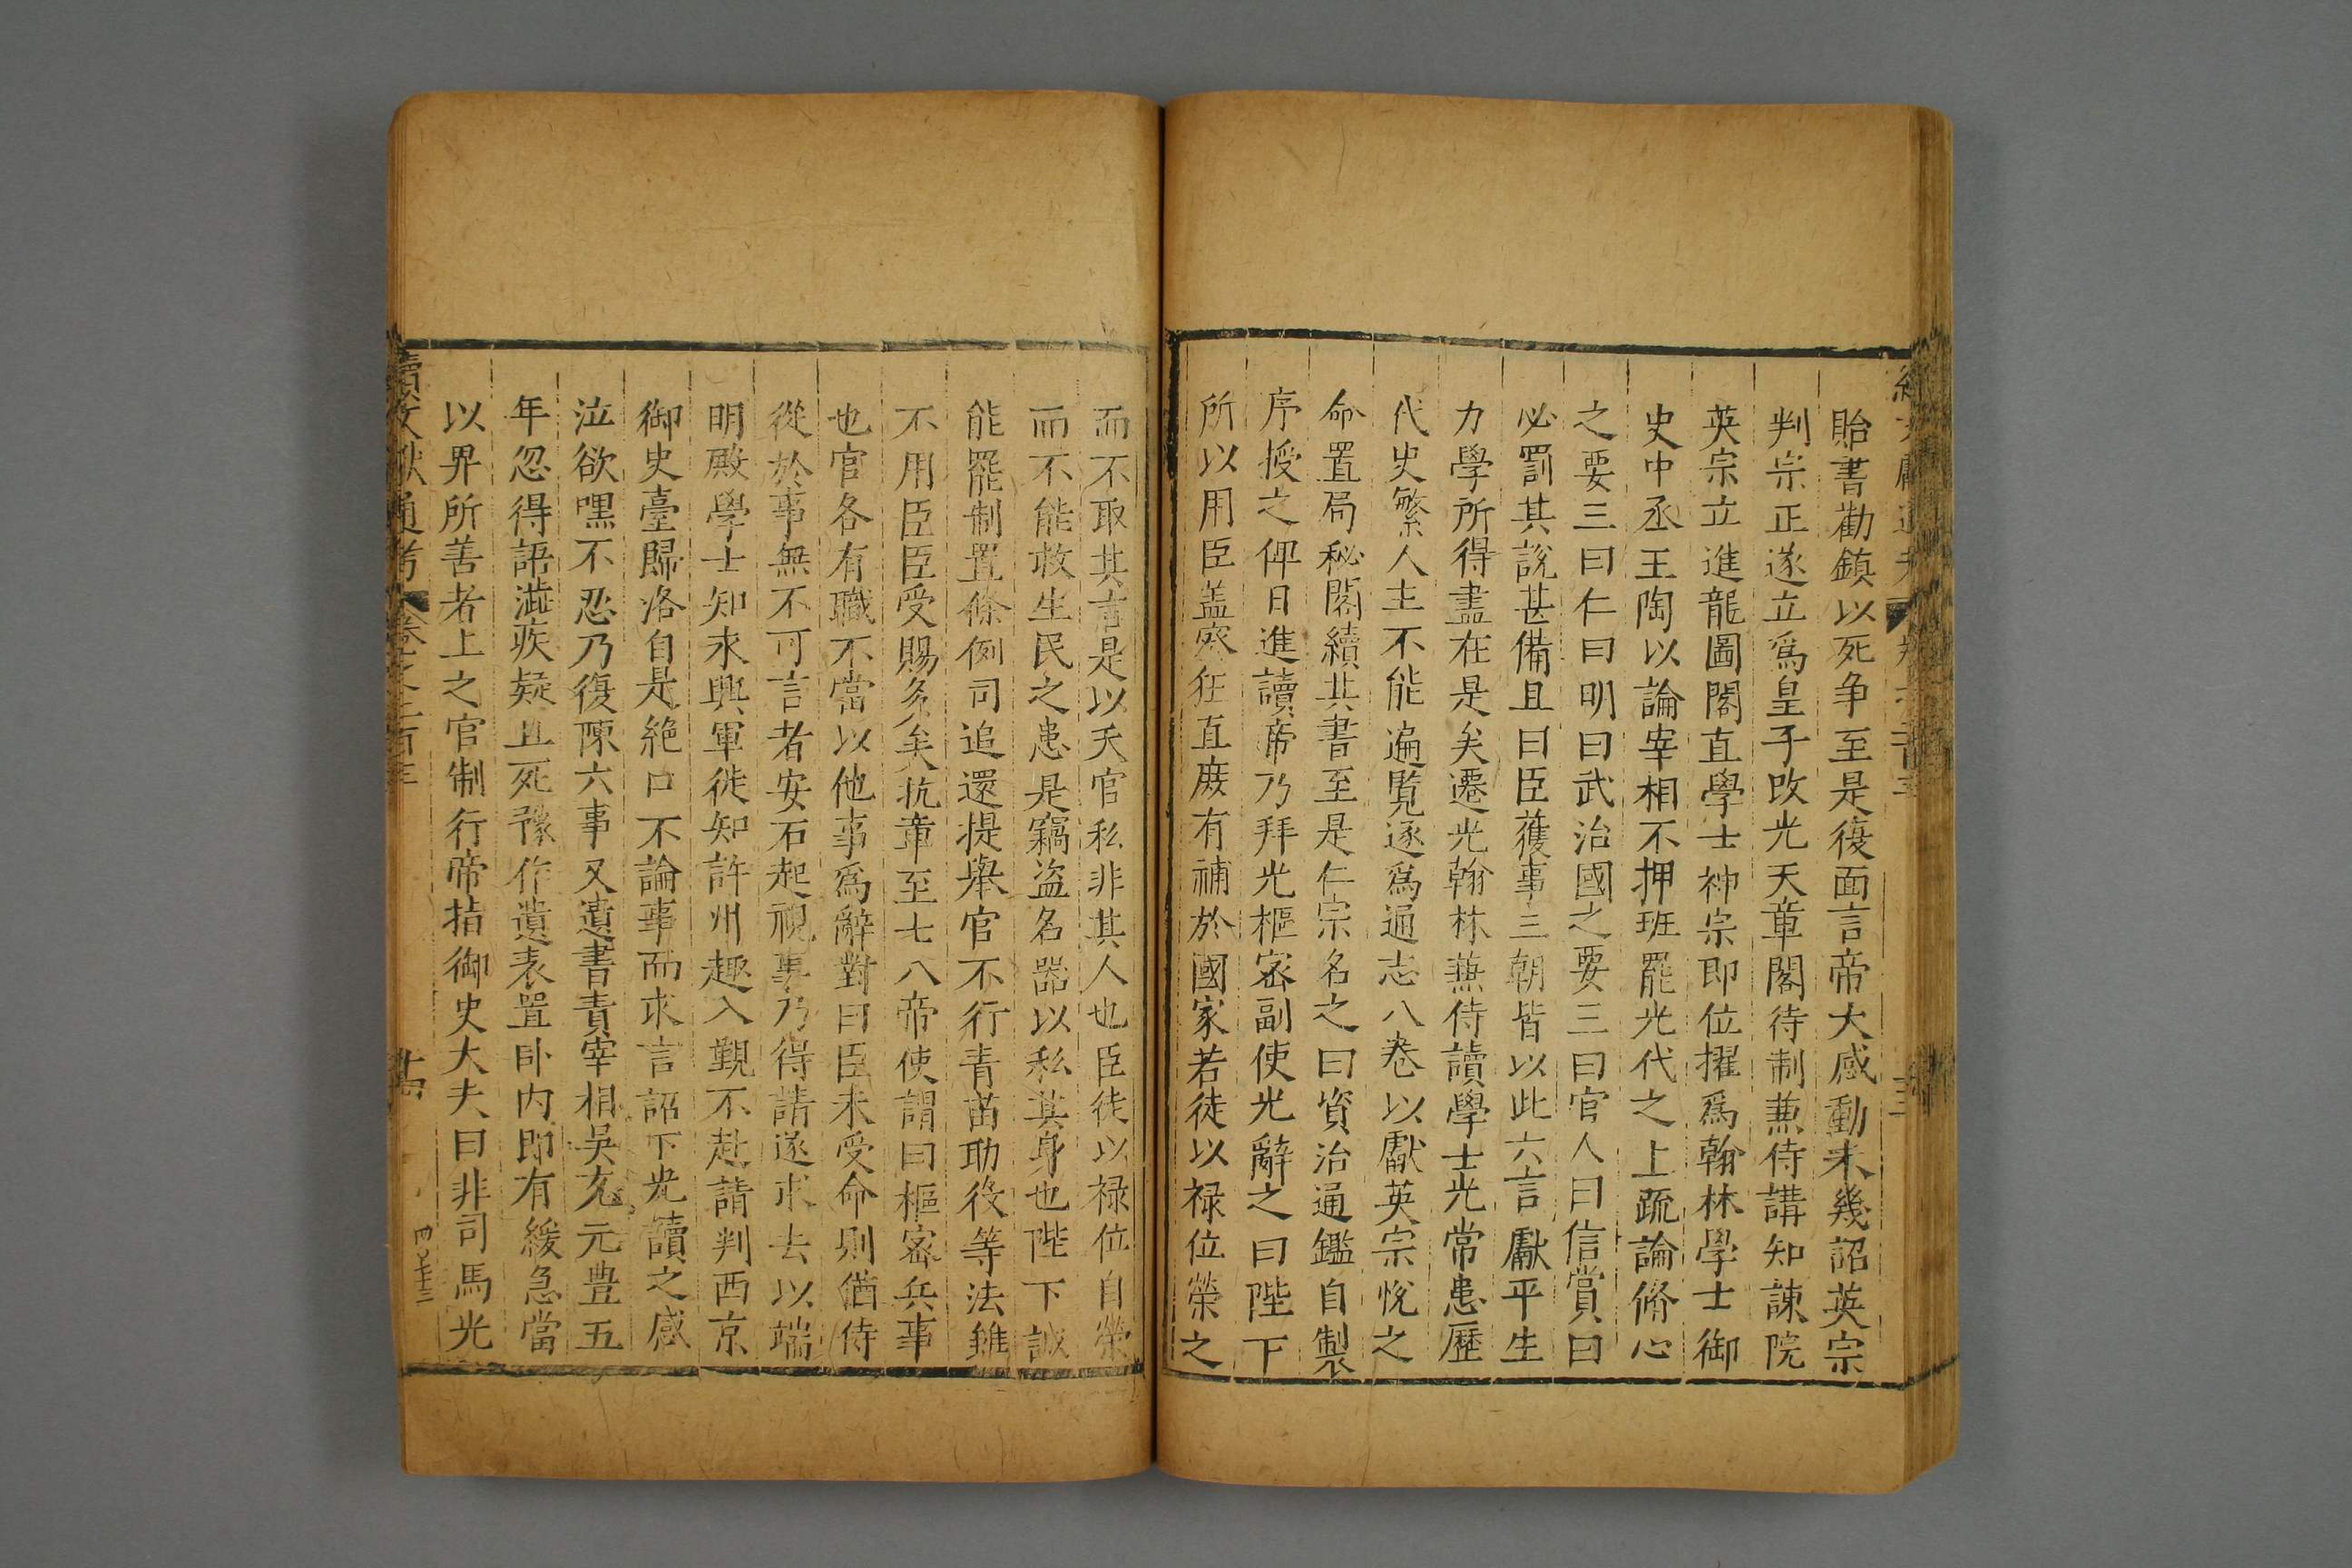 貽書勸鎮以死争至是復面言帝大感動未幾詔英宗
判宗正遂立爲皇子改光天章閣待制兼侍講知諌院
英宗立進龍圖閣直學士神宗即位擢爲翰林學士御
史中丞王陶以論宰相不押班罷光代之上疏論脩心
之要三曰仁曰明曰武治國之要三曰官人曰信賞曰
必罰其說甚備且曰臣獲事三朝皆以此六言獻平生
力學所得盡在是矣遷光翰林兼侍讀學士光常患歷
代史繁人主不能遍覽遂爲通志八卷以獻英宗悅之
命置局秘閣續其書至是仁宗名之曰資治通鑑自製
序授之俾日進讀帝乃拜光樞宻副使光辭之曰陛下
所以用臣盖察狂直庻有補於國家若徒以禄位榮之
而不取其言是以天官私非其人也臣徒以禄位自榮
而不能救生民之患是竊盗名器以私其身也陛下誠
能罷制置條例司追還提舉官不行青苗助役等法雖
不用臣臣受賜多矣抗章至七八帝使謂曰樞宻兵事
也官各有職不當以他事爲辭對曰臣未受命則猶侍
從於事無不可言者安石起視事乃得請遂求去以端
明殿學士知永興軍徙知許州趣入覲不赴請判西京
御史臺歸洛自是絶口不論事而求言詔下光讀之感
泣欲嘿不忍乃復陳六事又遺書責宰相吳充元豊五
年忽得語澁疾疑且死豫作遺表置卧内即有緩急當
以畀所善者上之官制行帝指御史大夫曰非司馬光
續文獻通考 卷之二百三 十四